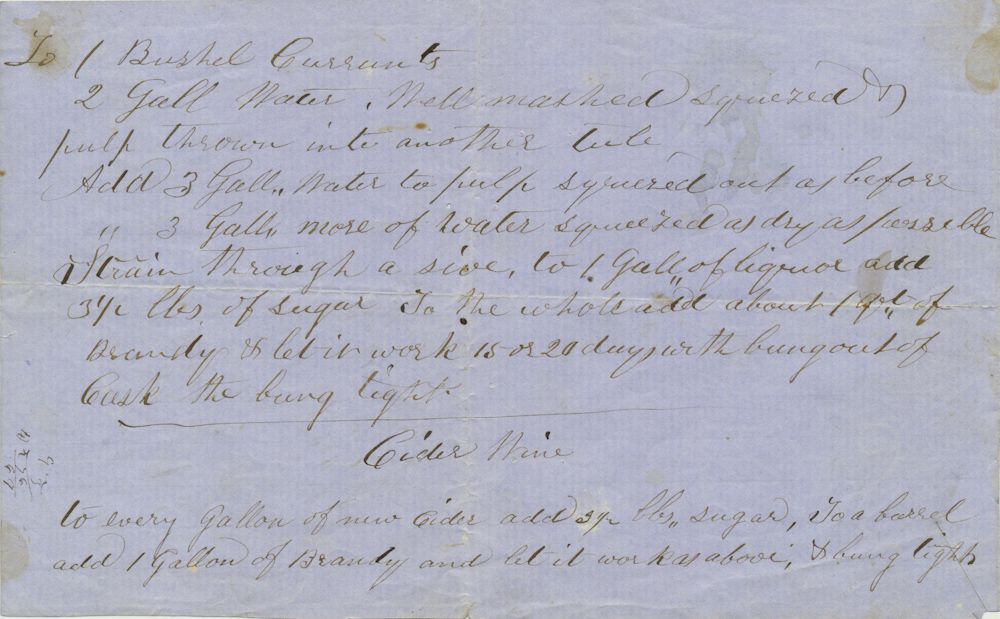 To 1 Bushel Currunts
2 Gall Water, Well mashed squezed &
pulp thrown into another tube
Add 3 Gall,, Water to pulp squezed out as before
,, 3 Galls more of water squeezed as dry as possible
Strain through a sive, to 1 Gall,, of liquor add
3½ lbs of sugar To the whole add about 1 qrt,, of
Brandy & let it work 15 or 20 days with bung out of
Cask the bung tight
Cider Wine
to every Gallon of new Cider add 3½ lbs,, sugar, To a barrel
add 1 Gallon of Brandy and let it work as above, & bung tight